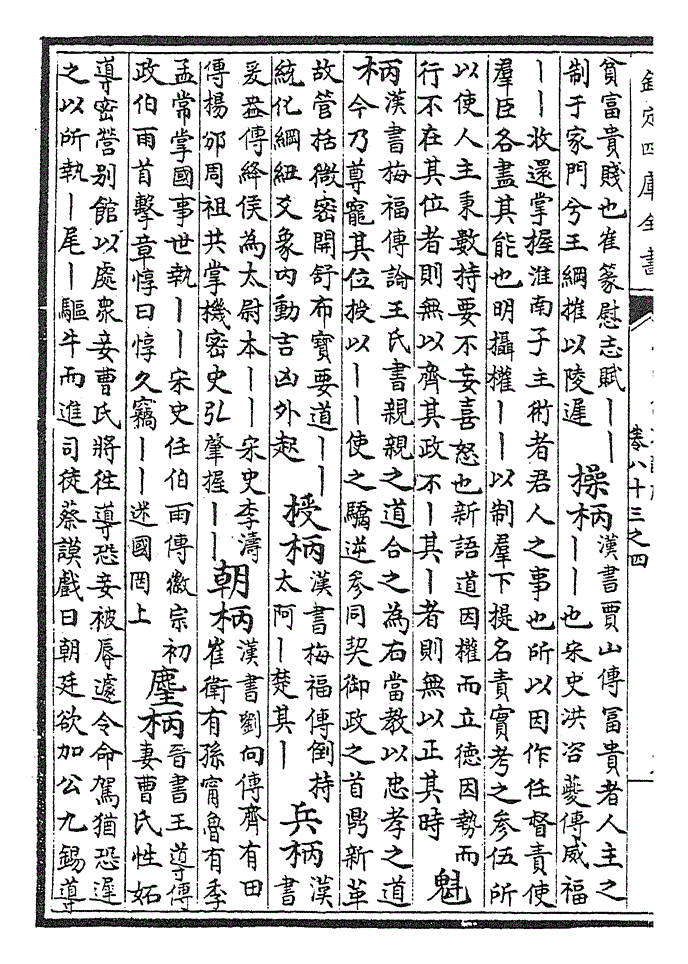 欽定四庫全書
卷八十三之四
貧富貴賤也崔篆慰志賦丨丨
制于家門兮王綱摧以陵遲
操柄
漢書賈山傳冨貴者人主之
丨丨也宋史洪咨夔傳威福
丨丨收還掌握淮南子主術者君人之事也所以因作任督責使
羣臣各盡其能也明攝權丨丨以制羣下提名責實考之參伍所
以使人主秉數持要不妄喜怒也新語道因權而立德因勢而
行不在其位者則無以齊其政不丨其丨者則無以正其時
魁
柄
漢書梅福傳論王氏書親親之道合之為右當教以忠孝之道
今乃尊寵其位授以丨丨使之驕逆參同契御政之首鼎新革
故管括微密開舒布寶要道丨丨
統化綱紐爻象内動吉凶外起
授柄
漢書梅福傳倒持
太阿丨楚其丨
兵柄
漢
書
爰盎傳絳侯為太尉本丨丨宋史李濤
傳楊邠周祖共掌機密史弘肇握丨丨
朝柄
漢書劉向傳齊有田
崔衛有孫甯魯有季
孟常掌國事世執丨丨宋史任伯雨傳徽宗初
政伯雨首擊章惇曰惇久竊丨丨迷國罔上
麈柄
晉書王導傳
妻曹氏性妬
導密營别館以處衆妾曹氏將往導恐妾被辱遽令命駕猶恐遲
之以所執丨尾丨驅牛而進司徒蔡謨戲曰朝廷欲加公九錫導